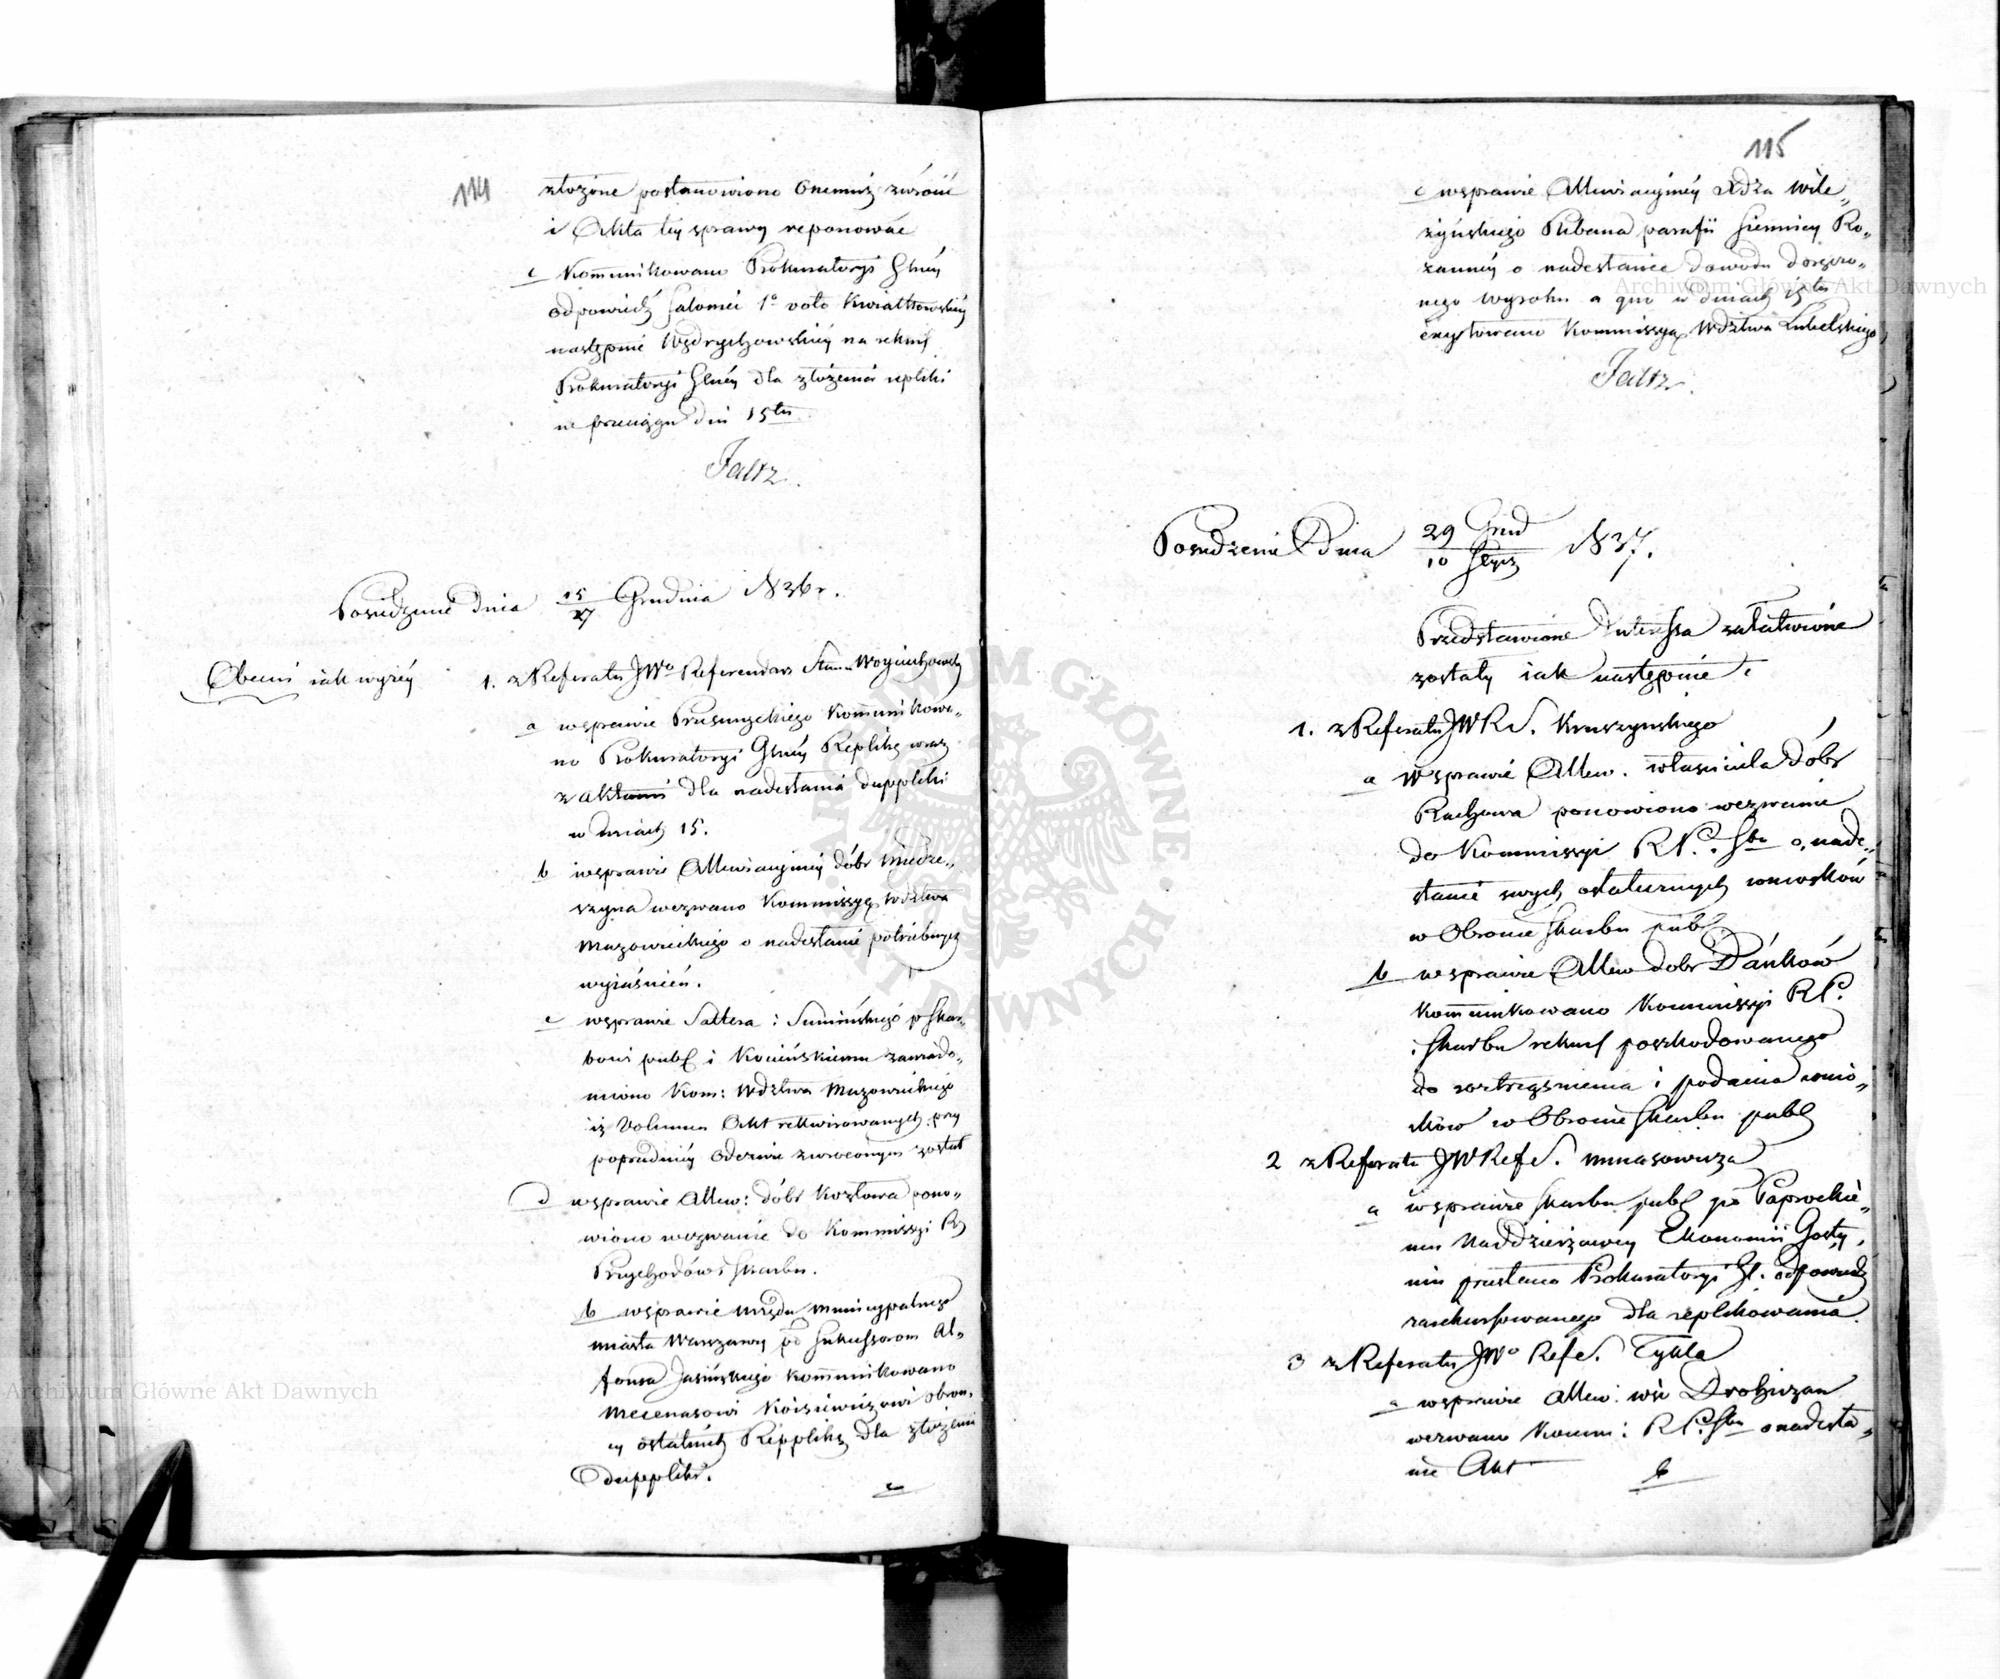 114
złożone postanowiono Onemuż zwrócić
i Akta tey sprawy reponować
c Kommunikowano Prokuratoryi Glney
odpowiedź Salomei 1º voto Kwiatkowskiey
następnie Wędrychowskiey na rekurs
Prokuratoryi Glney dla złożenia repliki
w przeciągu dni 15tu
Faltz
Posiedzenie dnia 15/27 Grudnia 1836 r.
Obecni iak wyżey
1. z Referatu JWo Referendarza Stanu Woyciechowsky
a w sprawie Kommunikowa„
no Prokuratoryi Glney Replikę wraz
z aktami dla nadesłania duppliki
w dniach 15.
b w sprawie Allewiacyiney dóbr Miedze„
szyna wezwano Kommissyą Wdztwa
Mazowieckiego o nadesłanie potrzebnych
wyiaśnień.
c w sprawie Saltera i Sumińskiego p Skar„
bowi publ i Kocieńskiemu zawiado„
miono Kom: Wdztwa Mazowieckiego
iż Volumen Akt rekwirowanych przy
poprzedniey Odezwie zwróconym został
d w sprawie Allew: dóbr Kozłowa pono„
wiono wezwanie do Kommissyi R
Przychodów i Skarbu.
b w sprawie Urzędu Municypalnego
miasta Warszawy po Sukcessorom Al„
fonsa Jasińskiego kommunikowano
Mecenasowi obron„
cy ostatnich Repplikę dla złożenia
Duppliki.
c
115
c w sprawie Allewiacyiney Xdza Wil„
czyńskiego Plebana parafii Siennicy Ro„
żanney o nadesłanie dowodu doręczo„
nego wyroku a quo w dniach 15tu
excytowano Kommissyą Wdztwa Lubelskiego
Faltz
Posiedzenie Dnia 29 Grud/10 Stycz 1837.
Przedstawione Interessa załatwione
zostały iak następnie.
1. z Referatu JW Re. Kruszynskiego
a W sprawie Allew. właściciela Dóbr
Rachowa ponowiono wezwanie
do Kommissyi R P. i Sbu o nade„
słanie swych ostatecznych wniosków
w Obronie Skarbu publ.
b w sprawie Allew dobr Dańków
kommunikowano Kommissyi R P.
i Skarbu rekurs poszkodowanego
do roztrząśnienia i podania wnio„
sków w Obronie Skarbu publ
2 z Referatu JW Refe. Minasowicza
a w sprawie Skarbu publ po Paprockie„
mu Naddzierżawcy Ekonomii Gosty„
nin przesłano Prokuratoryi Gl. odpowiedź
zarekursowanego dla replikowania.
3 z Referatu JWo Refe. Tykla
a w sprawie Allew: wsi Drohiczan
wezwano Komm: R P. i Sbu o nadesła„
nie Akt
b